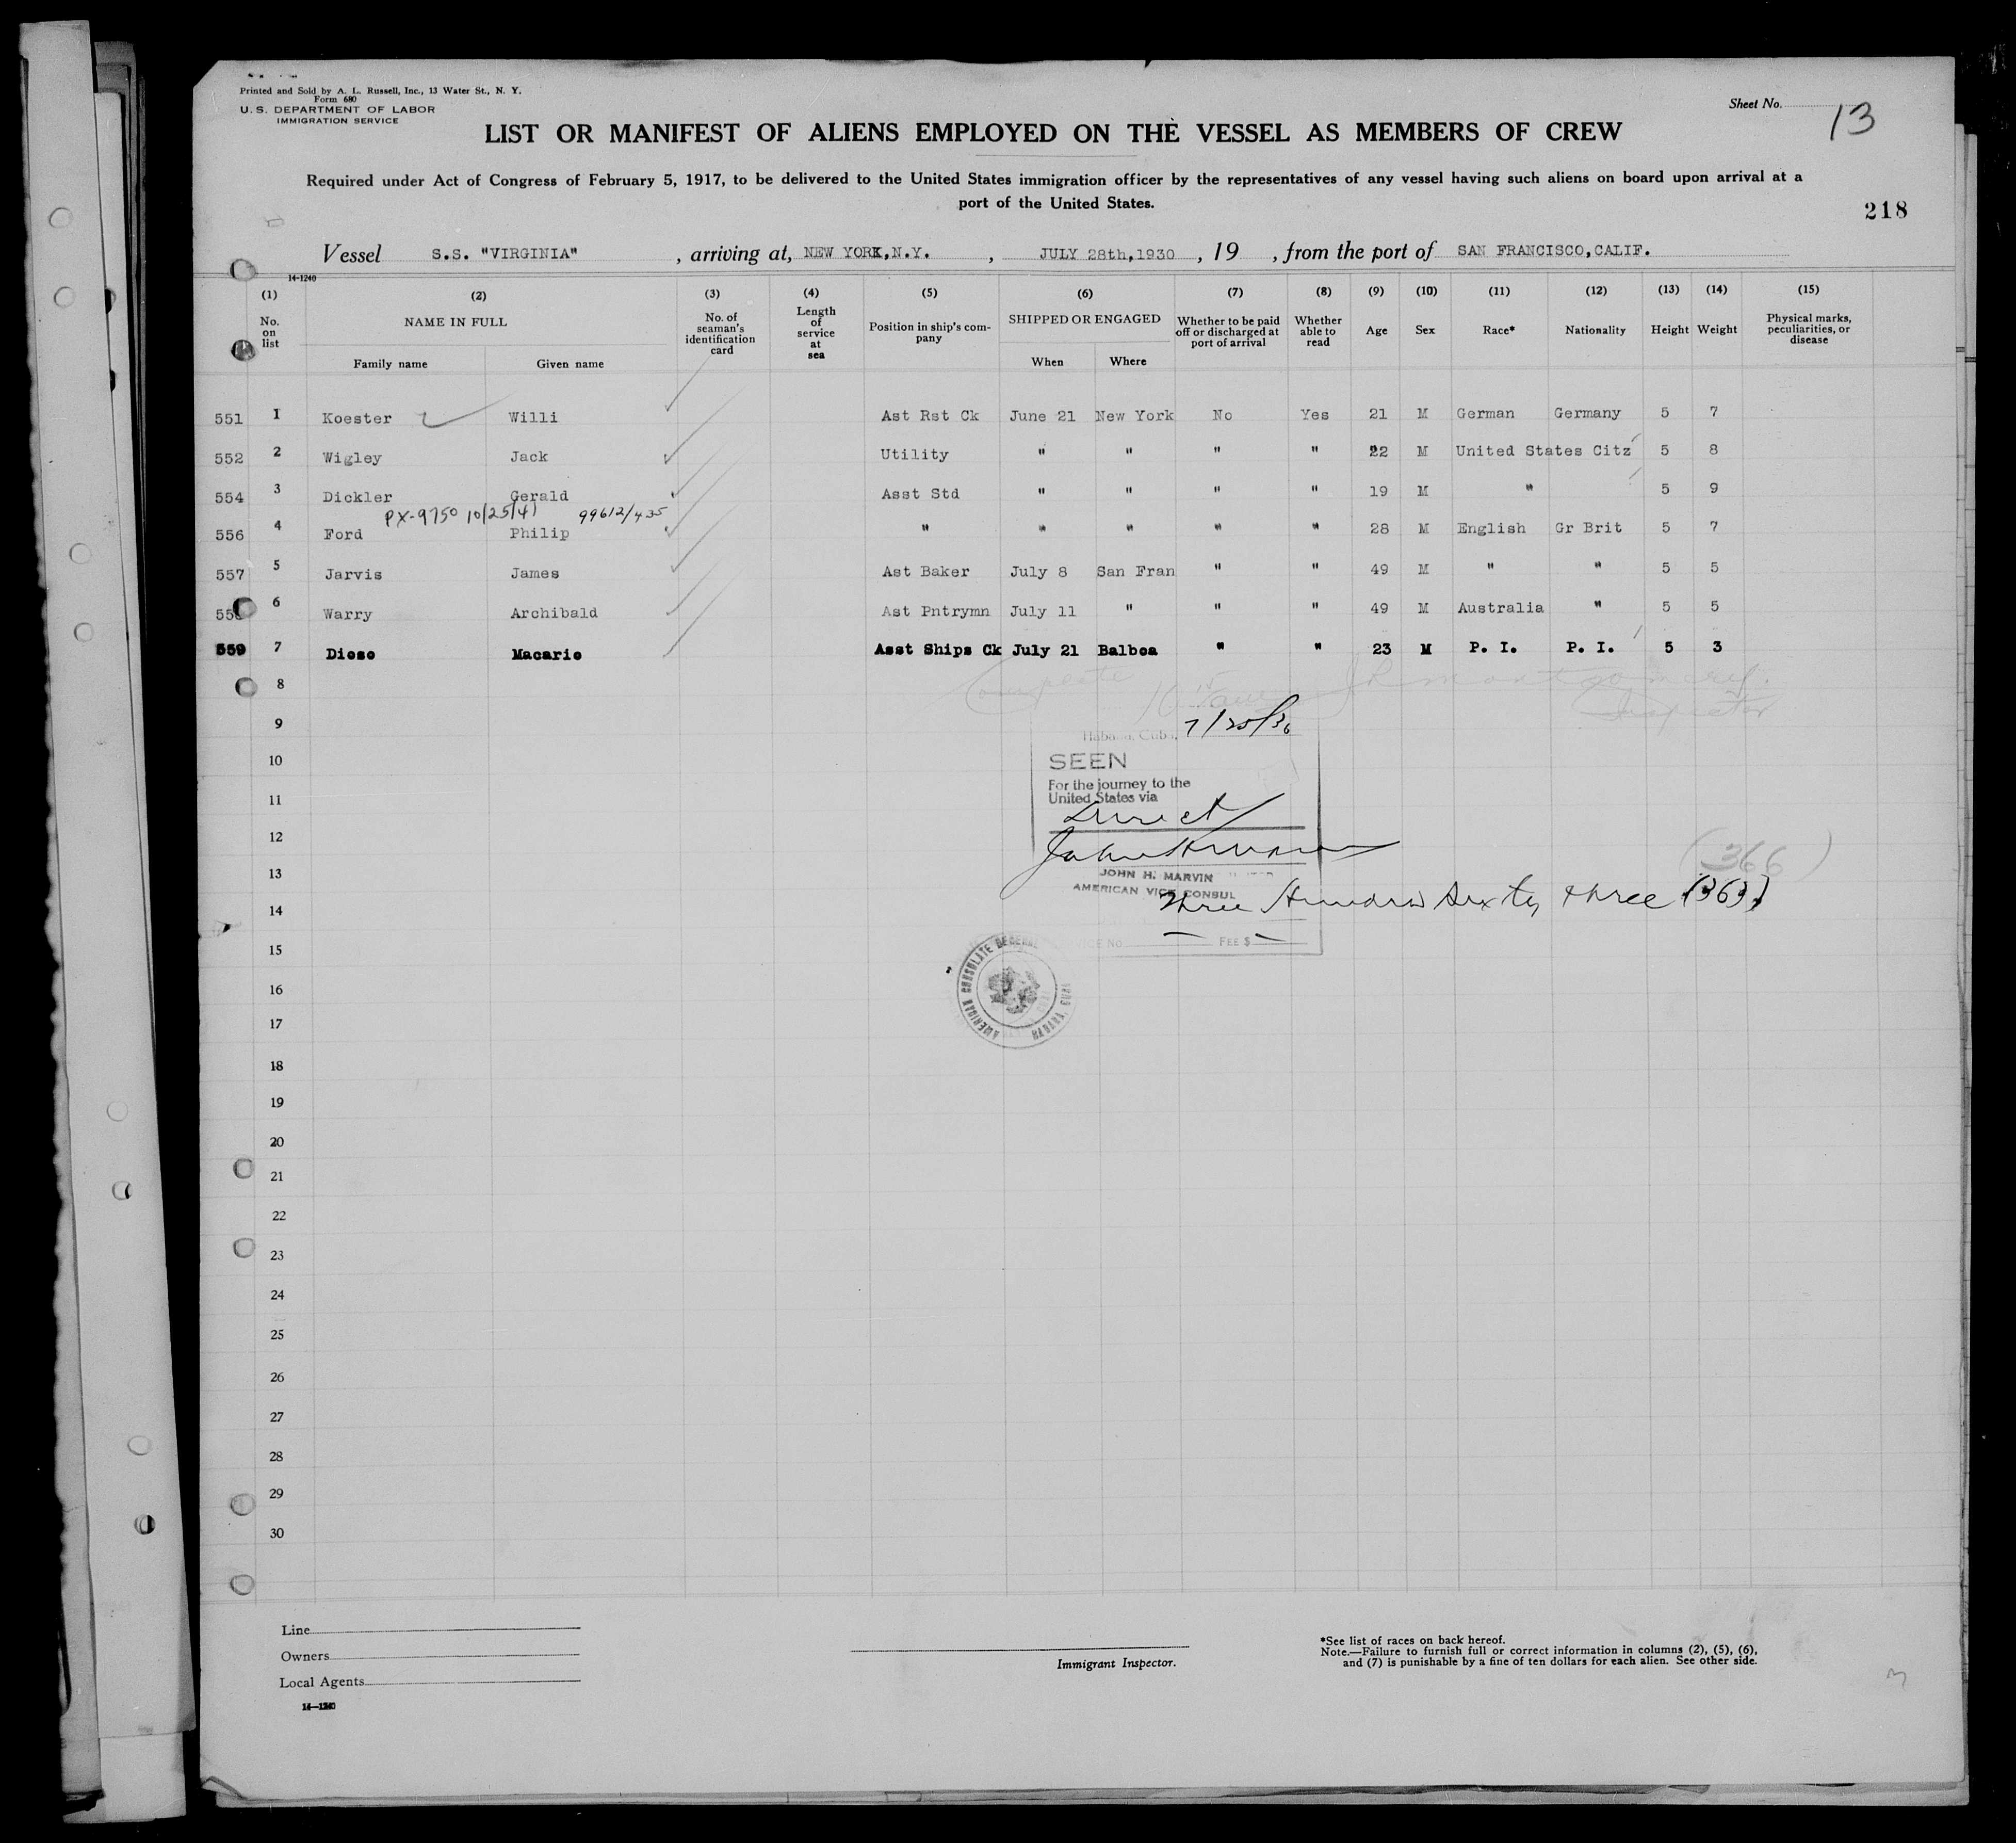 Printed and Sold by A. L. Russell, Inc., 13 Water St., N. Y.
Form 680
U. S. DEPARTMENT OF LABOR
IMMIGRATION SERVICE
Sheet No. 13
LIST OR MANIFEST OF ALIENS EMPLOYED ON THE VESSEL AS MEMBERS OF CREW
Required under Act of Congress of February 5, 1917, to be delivered to the United States immigration officer by the representatives of any vessel having such aliens on board upon arrival at a
port of the United States.
218
Vessel S.S. "VIRGINIA" , arriving at, NEW YORK,N.Y. , JULY 28th,1930 , 19 , from the port of SAN FRANCISCO,CALIF.
14-1240
(1) (2) (3) (4) (5) (6) (7) (8) (9) (10) (11) (12) (13) (14) (15)
No. on list NAME IN FULL Family name Given name No. of seaman's identification card Length of service at sea Position in ship's company SHIPPED OR ENGAGED When Where Whether to be paid off or discharged at port of arrival Whether able to read Age Sex Race* Nationality Height Weight Physical marks, peculiarities, or disease
551 1 Koester Willi Ast Rst Ck June 21 New York No Yes 21 M German Germany 5 7
552 2 Wigley Jack Utility " " " " 22 M United States Citz 5 8
554 3 Dickler Gerald Asst Std " " " " 19 M " 5 9
PX-9750 10/25/41 99612/435
556 4 Ford Philip " " " " " 28 M English Gr Brit 5 7
557 5 Jarvis James Ast Baker July 8 San Fran " " 49 M " " 5 5
558 6 Warry Archibald Ast Pntrymn July 11 " " " 49 M Australia " 5 5
559 7 Dioso Macario Asst Ships Ck July 21 Balboa " " 23 M P. I. P. I. 5 3
8
Complete J R Montgomery
Inspector
9
Habana, Cuba, 7/25/30
10
SEEN
For the journey to the
11
United States via
Direct
12
13
JOHN H. MARVIN
AMERICAN VICE CONSUL
(366)
14
Three Hundred Sixty Three (363)
15
No. FEE $
AMERICAN CONSULATE GENERAL HABANA, CUBA
16
17
18
19
20
21
22
23
24
25
26
27
28
29
30
Line
Owners
Local Agents
14—1240
Immigrant Inspector.
*See list of races on back hereof.
Note.—Failure to furnish full or correct information in columns (2), (5), (6),
and (7) is punishable by a fine of ten dollars for each alien. See other side.
3